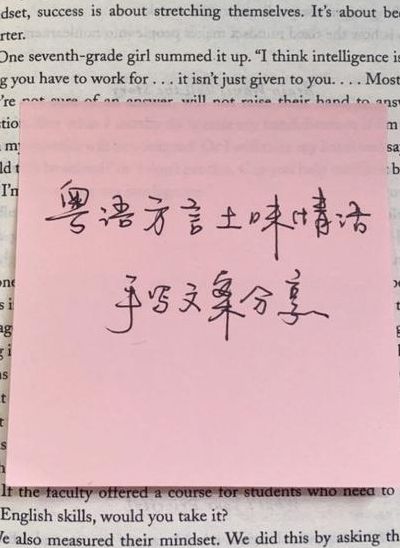 dset, success is about stretching themselves. It's about be
rter.
One seventh-grade girl summed it up. "I think intelligence is
g you have to work for . . . it isn't just given to you. . . . Most
're not sure of an answer, will not raise their hand to ans
粤语方言土味情话
手写文案分享
If the faculty offered a course for students who need to
English skills, would you take it?
We also measured their mindset. We did this by asking th